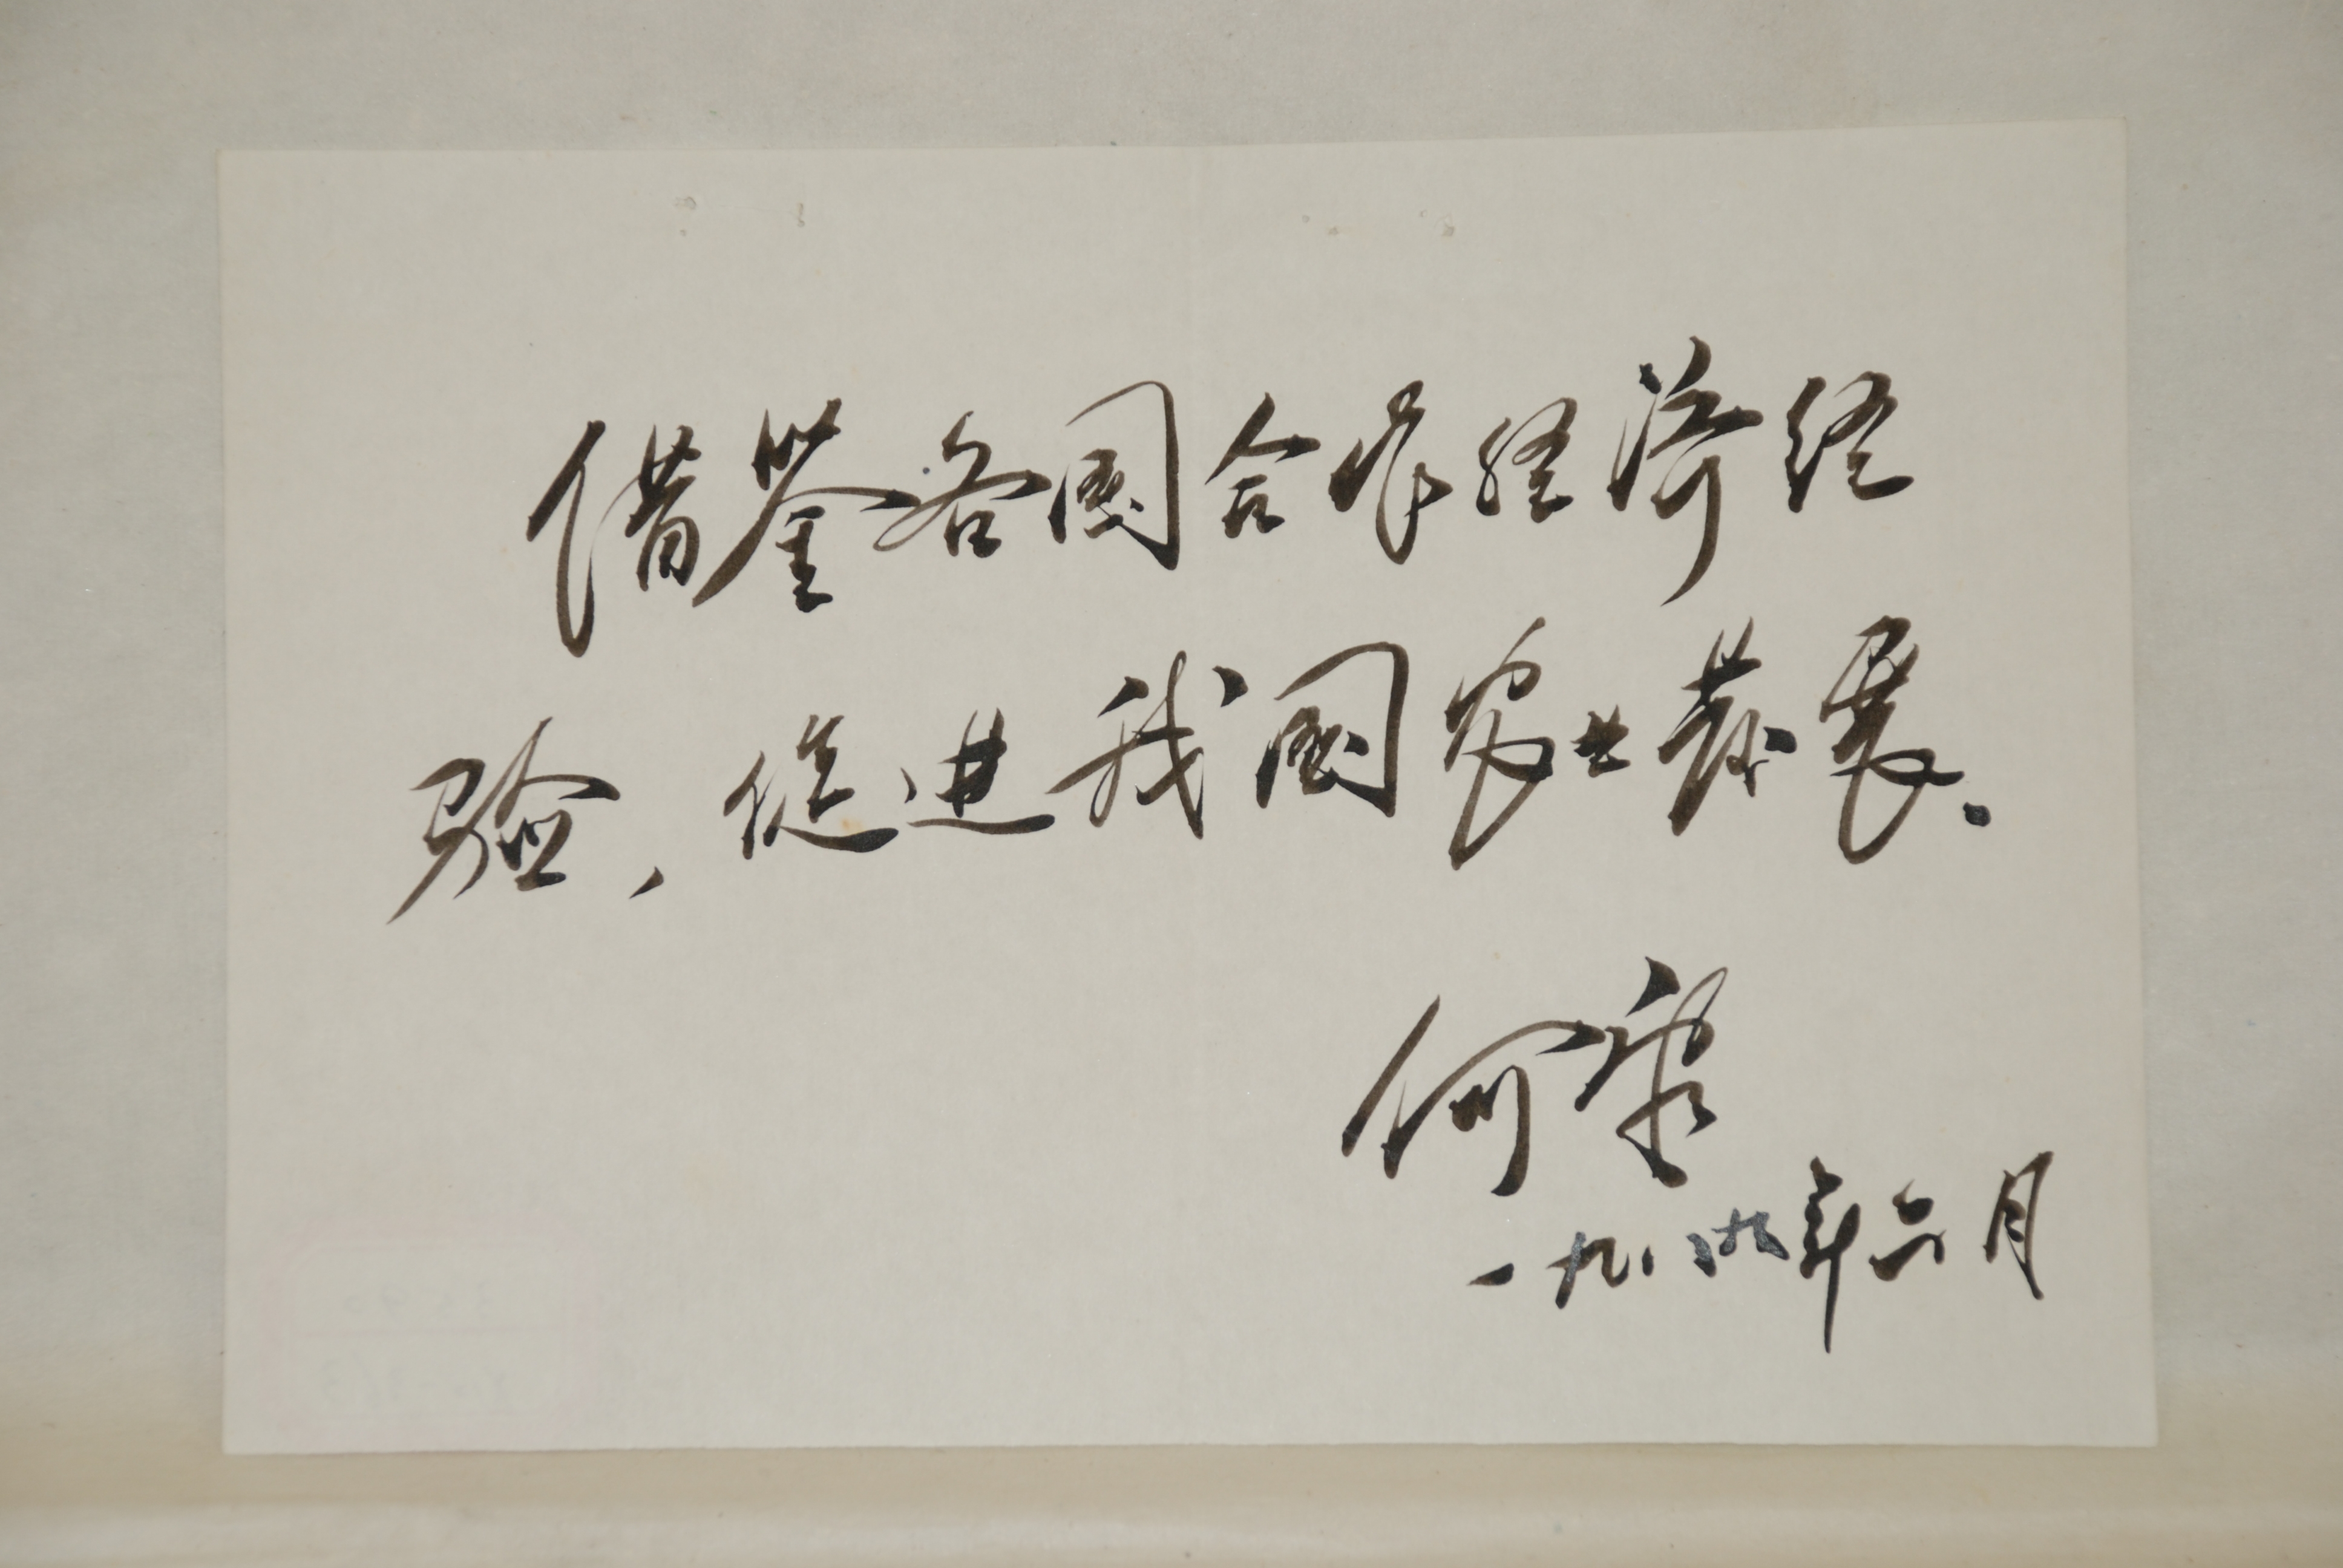 借鉴各国合作经济经
验，促进我国农业发展.
何康
一九八九年六月